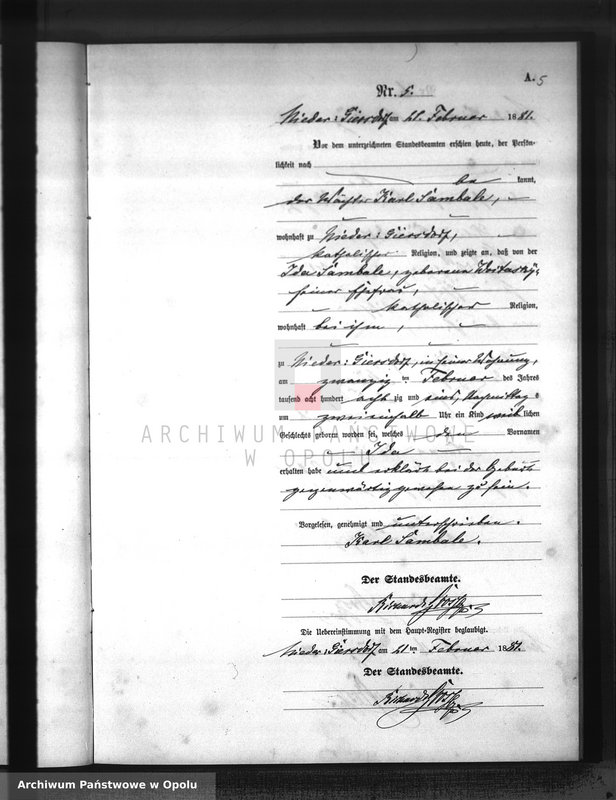 A. 5
Nr. 5.
Nieder-Giersdorf am 21. Februar 1881.
Vor dem unterzeichneten Standesbeamten erschien heute, der Persön-
lichkeit nach
be kannt,
der Wächter Karl Sambale,
wohnhaft zu Nieder-Giersdorf,
katholischer Religion, und zeigte an, daß von der
Ida Sambale, geborene
seiner Ehefrau,
katholischer Religion,
wohnhaft bei ihm,
zu Nieder-Giersdorf, in seiner Wohnung,
am zwanzig ten Februar des Jahres
tausend acht hundert acht zig und eins, Nachmittags
um zweieinhalb Uhr ein Kind weib lichen
Geschlechts geboren worden sei, welches den Vornamen
Ida
erhalten habe und erklärte bei der Geburt
gegenwärtig gewesen zu sein.
Vorgelesen, genehmigt und unterschrieben.
Karl Sambale.
Der Standesbeamte.
Die Uebereinstimmung mit dem Haupt-Register beglaubigt.
Nieder-Giersdorf am 21 ten Februar 1881.
Der Standesbeamte.
ARCHIWUM PAŃSTWOWE
W OPOLU
Archiwum Państwowe w Opolu